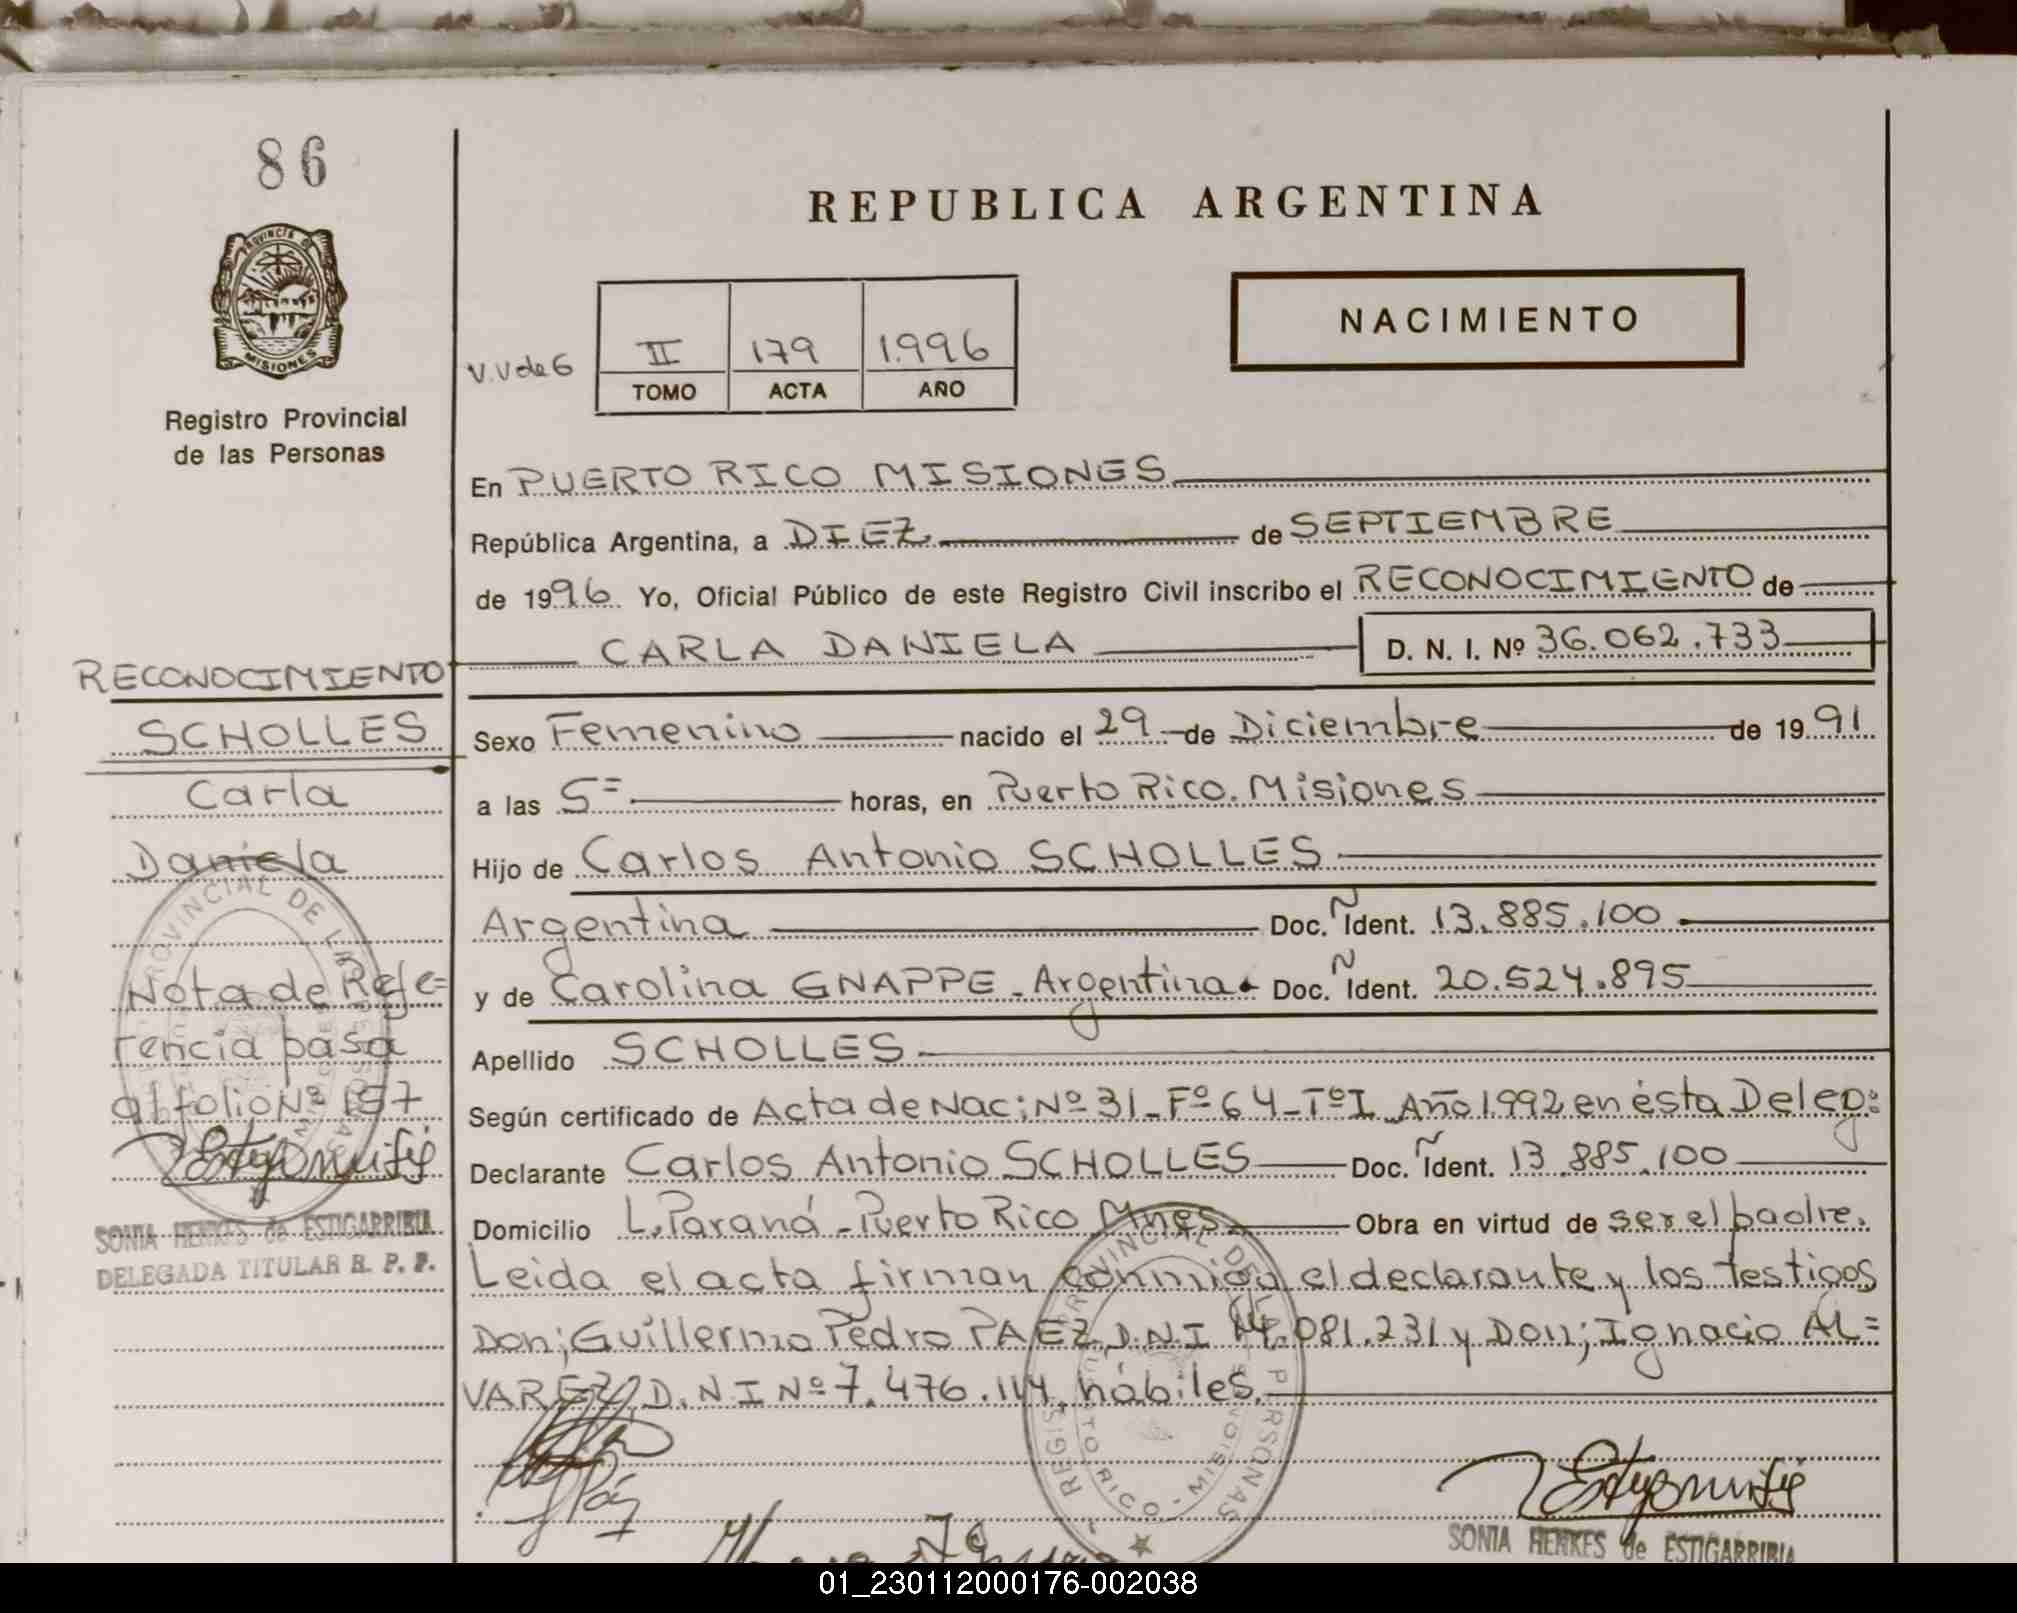 86
REPUBLICA ARGENTINA
PROVINCIA DE
MISIONES
Registro Provincial
de las Personas
NACIMIENTO
V.V de 6
II 179 1.996
TOMO ACTA AÑO
En PUERTO RICO MISIONES
República Argentina, a DIEZ de SEPTIEMBRE
de 1996 Yo, Oficial Público de este Registro Civil inscribo el RECONOCIMIENTO de
CARLA DANIELA D. N. I. Nº 36.062.733
RECONOCIMIENTO
SCHOLLES
Carla
Daniela
Sexo Femenino nacido el 29 de Diciembre de 1991
a las 5= horas, en Puerto Rico. Misiones
Hijo de Carlos Antonio SCHOLLES
Argentina Doc. Ñ Ident. 13.885.100
y de Carolina GNAPPE - Argentina Doc. Ñ Ident. 20.524.895
Apellido SCHOLLES
Según certificado de Acta de Nac; Nº 31 - Fº 64 - Tº I Año 1992 en ésta Deleg:
Declarante Carlos Antonio SCHOLLES Doc. Ñ Ident. 13.885.100
Domicilio L. Paraná - Puerto Rico Mnes. Obra en virtud de ser el padre.
Leida el acta firman conmigo el declarante y los testigos
Don; Guillermo Pedro PAEZ, D.N.I 14.081.231 y Don; Ignacio AL=
VAREZ, D.N.I Nº 7.476.114, hábiles.
Nota de Refe=
rencia pasa
al folio Nº 157
SONIA HENKES de ESTIGARRIBIA
DELEGADA TITULAR R. P. P.
REGISTRO PROVINCIAL DE LAS PERSONAS
PUERTO RICO - MISIONES
SONIA HENKES de ESTIGARRIBIA
01_230112000176-002038